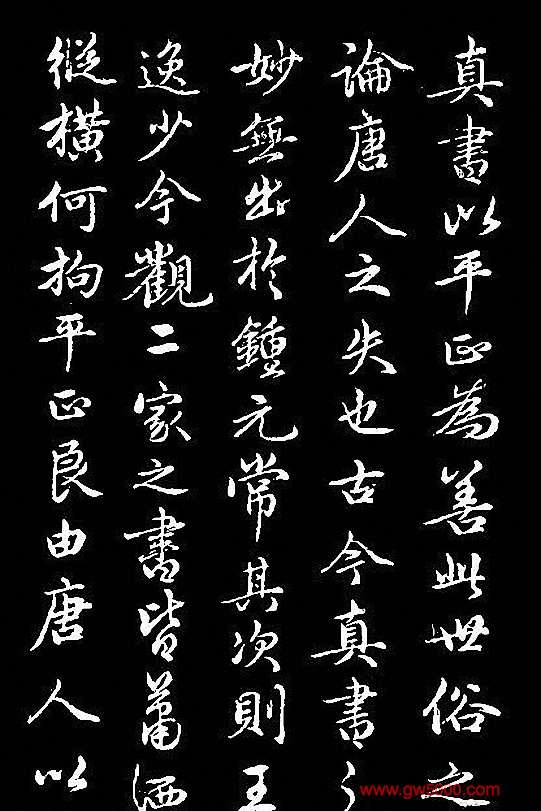 真書以平正為善此世俗之
論唐人之失也古今真書
妙無出於鍾元常其次則王
逸少今觀二家之書皆蕭洒
縱橫何拘平正良由唐人以
www.gw5000.com